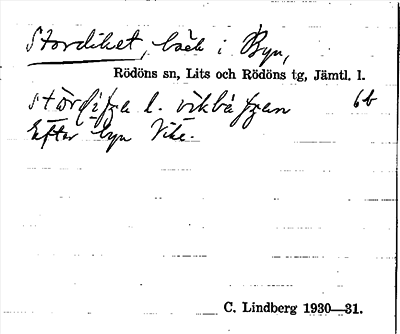 Stordiket, bäck i Byn,
Rödöns sn, Lits och Rödöns tg, Jämtl. l.
l. 6b
Efter byn Vike.
C. Lindberg 1930—31.